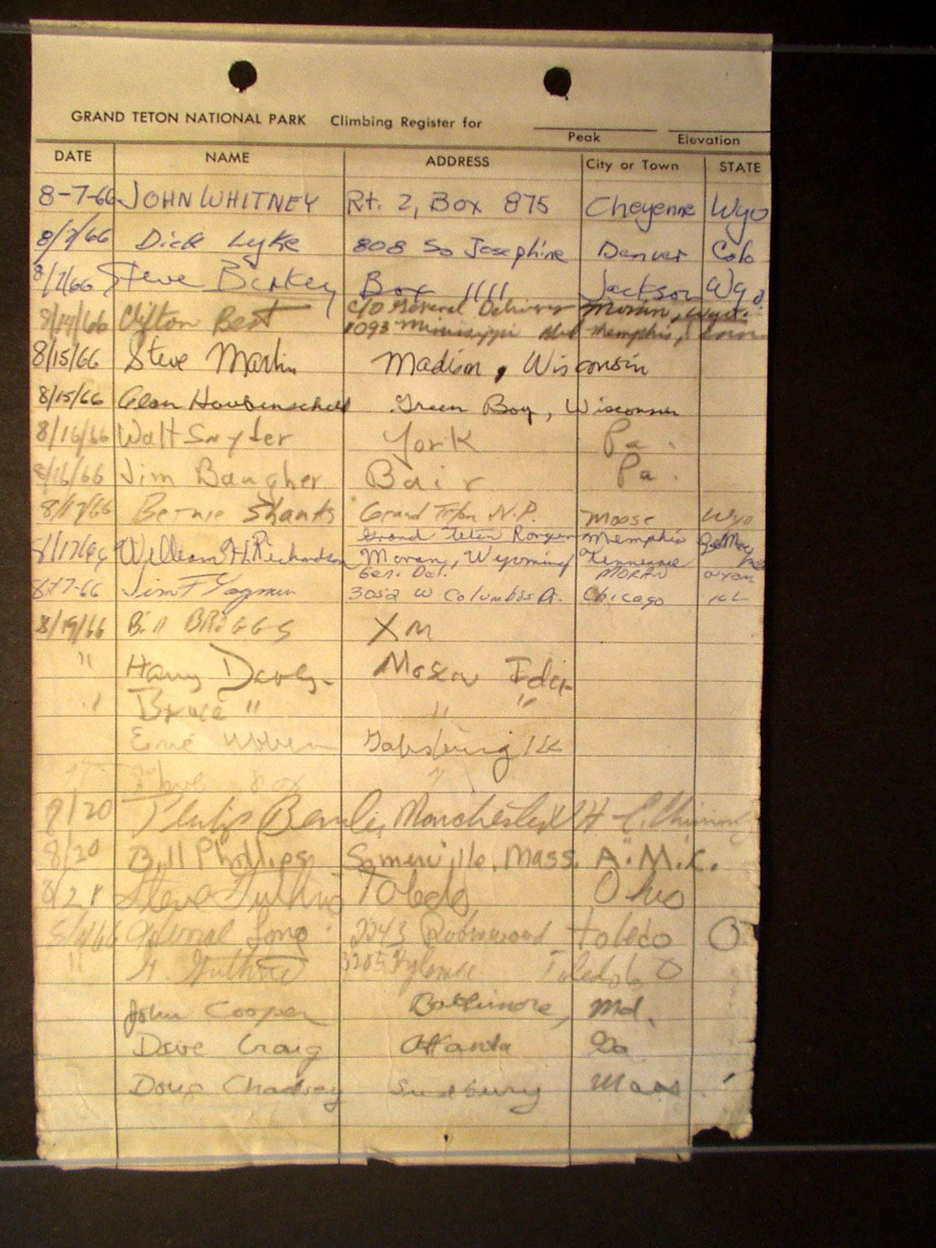 GRAND TETON NATIONAL PARK Climbing Register for
Peak Elevation
DATE NAME ADDRESS City or Town STATE
8-7-66 JOHN WHITNEY Rt. 2, Box 875 Cheyenne Wyo
8/7/66 Dick Lyke 808 So Josephine Denver Colo
8/7/66 Steve Box 1111 Jackson Wyo.
Clifton Best c/o General Delivery Moran, Wyo.
1093 Mississippi Memphis,
8/15/66 Steve Martin Madison, Wisconsin
8/15/66 Green Bay, Wisconsin
8/16/66 Walt Snyder York Pa.
8/16/66 Jim Baugher Bair Pa.
8/17/66 Bernie Shanks Grand Teton N.P. Moose Wyo
Grand Teton Memphis
8/17/66 William H. Richardson Moran, Wyoming Tennessee
Gen. Del. MORAN
8-17-66 Jim 3052 W Columbia Chicago
8/19/66 Bill BRIGGS XM
" Harry Moscow
" Bruce " "
Ernie
8/20 Manchester
8/20 Bill Phillips Somerville, Mass. A.M.C.
8/21 Steve Guthrie Toledo, Ohio
2243 Robinwood Toledo O
" Guthrie Toledo O
John Cooper Baltimore, Md.
Dave Craig Atlanta Ga
Doug Sudbury Mass